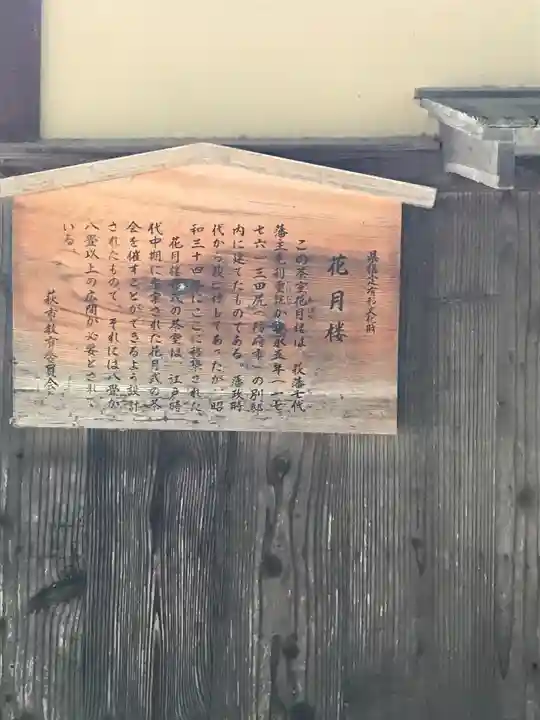 県指定有形文化財
花月楼
この茶室花月楼は、萩藩七代
藩主毛利重就が安永五年(一七
七六)三田尻(防府市)の別邸
内に建てたものである。藩政時
代から
であったが、昭
和三十四年にここに移築された。
花月楼形式の茶室は、江戸時
代中期に考案された花月式の茶
会を催すことができるよう設計
されたもので、それには八畳か
八畳以上の広間が必要とされて
いる。
萩市教育委員会